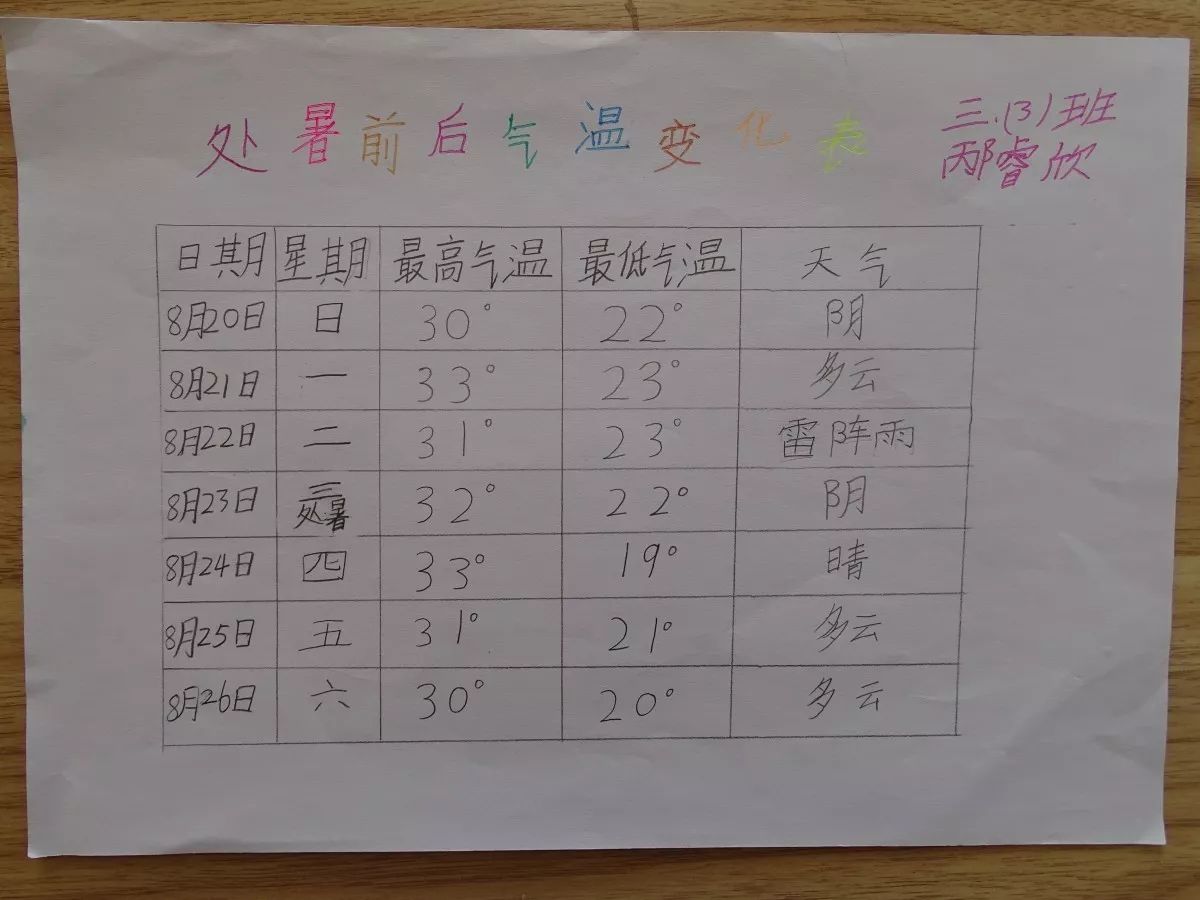 处暑前后气温变化表
三.(3)班
邴睿欣
日期 星期 最高气温 最低气温 天气
8月20日 日 30° 22° 阴
8月21日 一 33° 23° 多云
8月22日 二 31° 23° 雷阵雨
8月23日 三 处暑 32° 22° 阴
8月24日 四 33° 19° 晴
8月25日 五 31° 21° 多云
8月26日 六 30° 20° 多云